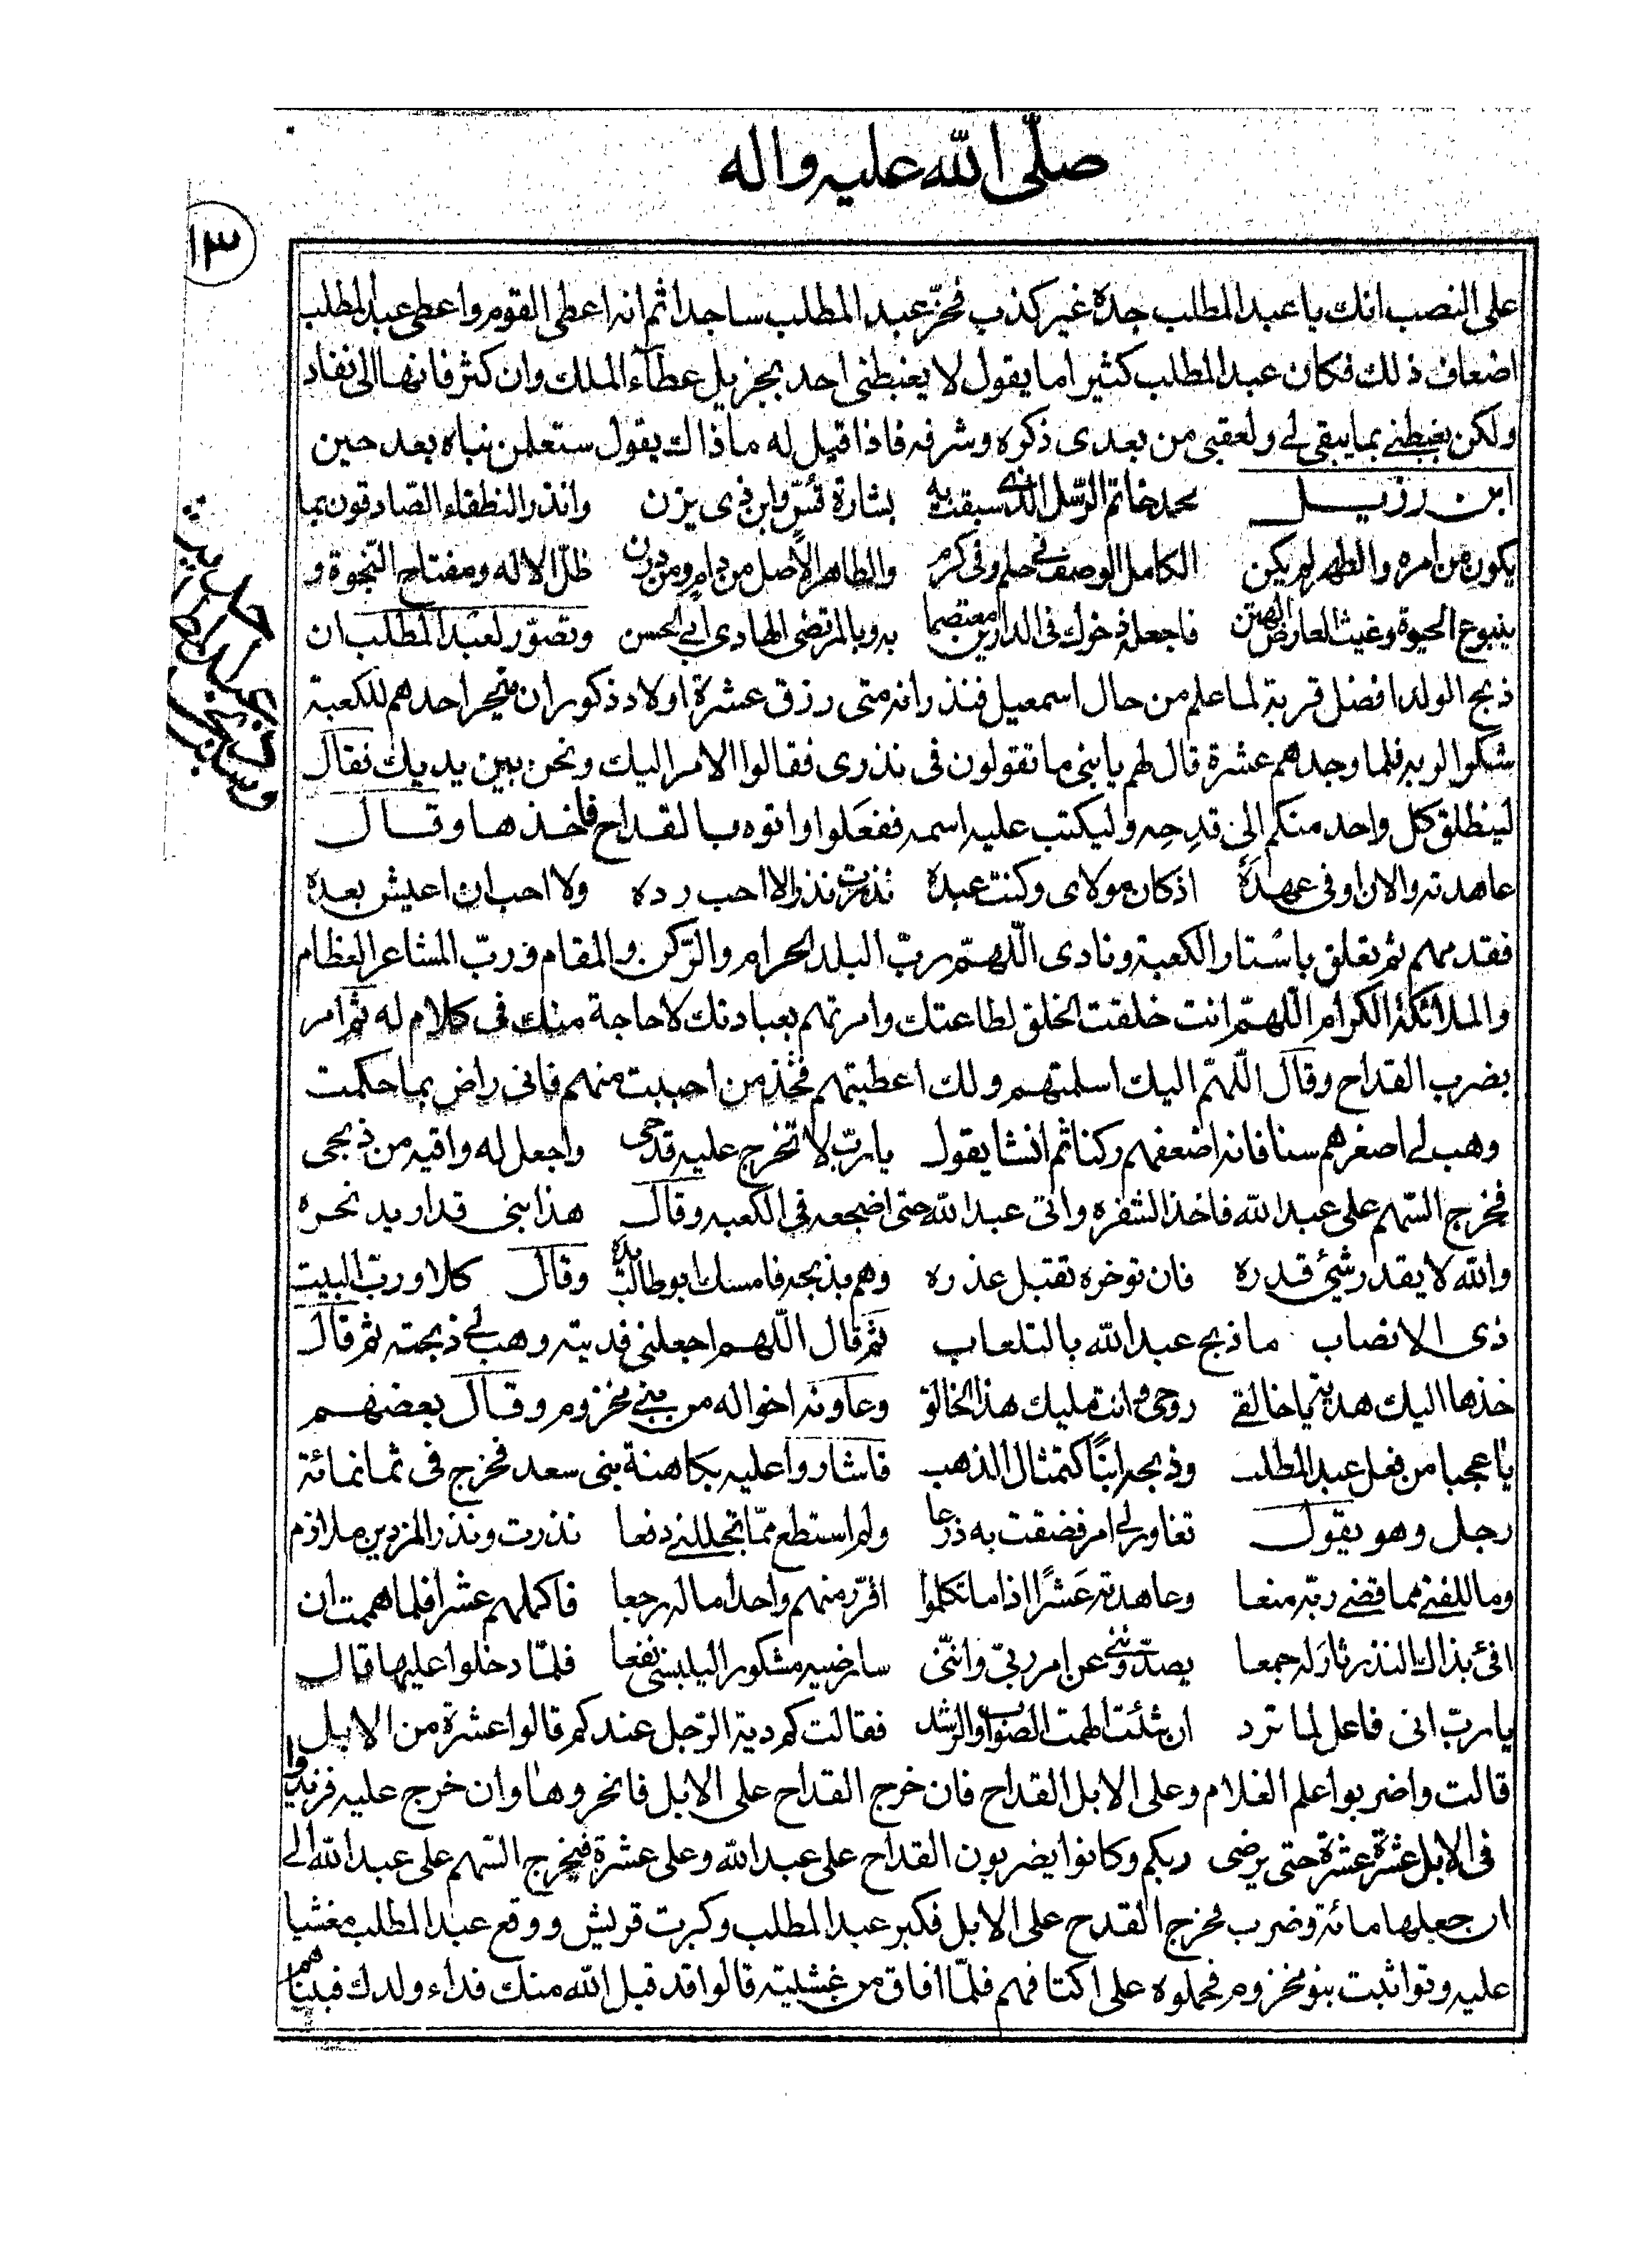 صلّى الله عليه واله
١٣
على النصب انك يا عبد المطلب جده غير كذب فخرّ عبد المطلب ساجدا ثم انه اعطى القوم واعطى عبد المطلب
اضعاف ذلك فكان عبد المطلب كثيرا ما يقول لا يغبطنى احد بجزيل عطآء الملك وان كثر فانها الى نفاد
ولكن يغبطنے بما يبقى لے ولعقبى من بعدى ذكره وشرفه فاذا قيل له ما ذاك يقول ستعلمن نباه بعد حين
ابن رزيك محمد خاتم الرّسل الذى سبقت به بشارة قُسّ وابن ذى يزن وانذر النطقاء الصّادقون بما
يكون من امره والطهر لم يكن الكامل الوصف فے حلم وفى كرم والطاهر الاصل من ذام ومن درن ظلّ الاله ومفتاح النّجوة و
ينبوع الحيوة وغيث العارض الهتن فاجعله ذخرك فى الدارين معتصما به وبالمرتضى الهادى ابى الحسن وتصوّر لعبد المطلب ان
ذبح الولد افضل قربة لما علم من حال اسمعيل فنذر انه متى رزق عشرة اولاد ذكور ان ينحر احدهم للكعبة
شكرا لربه فلما وجدهم عشرة قال لهم يا بنى ما تقولون فى نذرى فقالوا الامر اليك ونحن بين يديك فقال
لينطلق كل واحد منكم الى قدحه وليكتب عليه اسمه ففعلوا واتوه بالقداح فاخذها وقال
عاهدته والان اوفى عهده اذ كان مولاى وكنت عبده نذرت نذرا لا احب رده ولا احب ان اعيش بعده
فقدمهم ثم تعلق باستار الكعبة ونادى اللّهمّ ربّ البلد الحرام والرّكن والمقام وربّ المشاعر العظام
والملائكة الكرام اللّهمّ انت خلقت الخلق لطاعتك وامرتهم بعبادتك لا حاجة منك فى كلام له ثم امر
بضرب القداح وقال اللّهمّ اليك اسلمتهم ولك اعطيتهم فخذ من احببت منهم فانى راض بما حكمت
وهب لے اصغرهم سنا فانه اضعفهم ركنا ثم انشا يقول يا ربّ لا تخرج عليه قدحى واجعل له واقيه من ذبحى
فخرج السّهم على عبد الله فاخذ الشفره واتى عبد الله حتى اضجعه فى الكعبه وقال هذا بنى قد اريد نحره
والله لا يقدر شئ قدره فان توخره تقبل عذره وهم بذبحه فامسك ابو طالب يده وقال كلا ورب البيت
ذى الانصاب ما ذبح عبد الله بالتلعاب ثم قال اللّهم اجعلنى فديته وهب لے ذبحته ثم قال
خذها اليك هدية يا خالقے روحى وانت مليك هذا الخالق وعاونه اخواله من بنے مخزوم وقال بعضهم
يا عجبا من فعل عبد المطلب وذبحه ابنًا كتمثال الذهب فاشاروا عليه بكاهنة بنى سعد فخرج فى ثمانمائة
رجل وهو يقول تغاورلے امر فضقت به ذرعا ولم استطع ممّا تجللنے دفعا نذرت ونذر المرء دين ملازم
وما للفتے مما قضے ربّه منعا وعاهدته عَشرًا اذا ما تكلموا اقرّب منهم واحدا ما له رجعا فاكملهم عشرا فلما هممت ان
افئ بذاك النذر ثار له جمعا يصدّوننى عن امر ربّى وانّنى سارضيه مشكورا ليلبسنى نفعا فلمّا دخلوا عليها قال
يا ربّ انى فاعل لما ترد ان شئت الهمت الصواب والرشد فقالت كم دية الرّجل عندكم قالوا عشرة من الابل
قالت واضربوا على الغلام وعلى الابل القداح فان خرج القداح على الابل فانحروها وان خرج عليه فزيدوا
فى الابل عشرة عشرة حتى يرضى ربكم وكانوا يضربون القداح على عبد الله وعلى عشرة فيخرج السّهم على عبد الله الى
ان جعلها مائة وضرب فخرج القدح على الابل فكبر عبد المطلب وكبرت قريش ووقع عبد المطلب مغشيا
عليه وتواثبت بنو مخزوم فحملوه على اكتافهم فلمّا افاق من غشيته قالوا قد قبل الله منك فداء ولدك فبيناهم